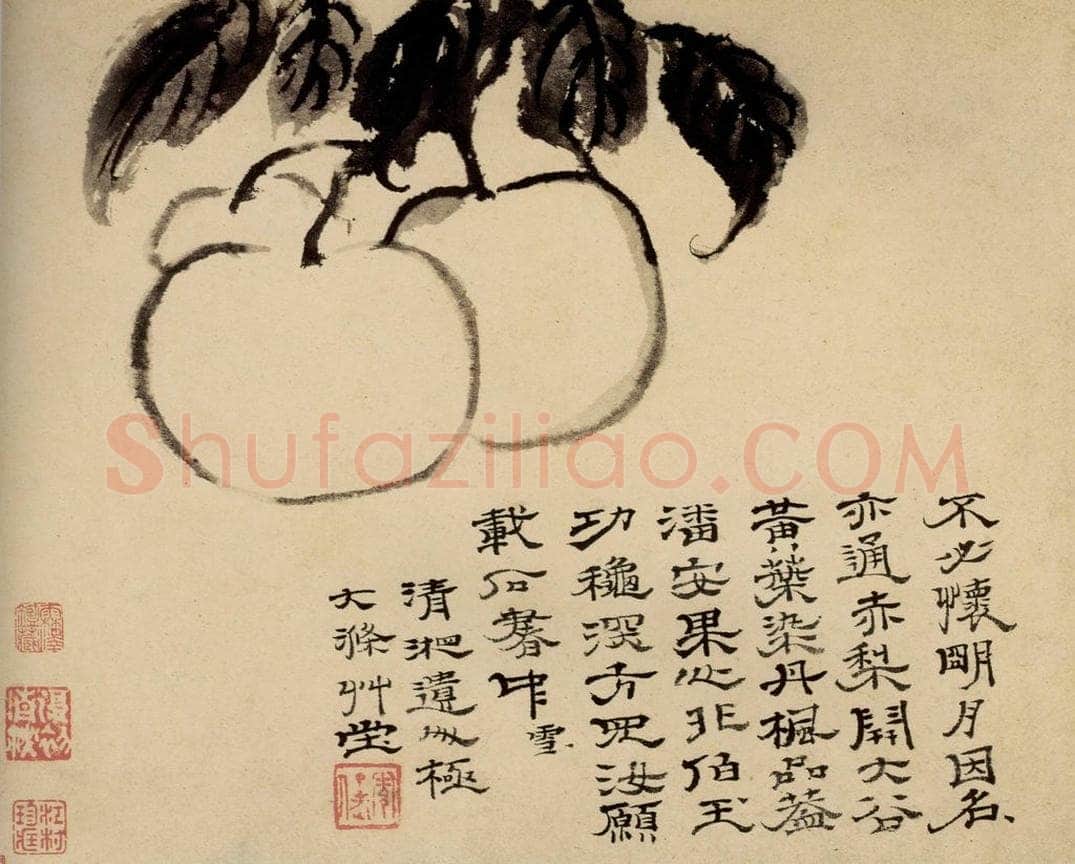 不必懷明月因名
亦通赤梨鬪大谷
黃葉染丹楓品蓋
潘安果心非伯玉
功穐深方汝願
載中雪
清湘遺人極
大滌艸堂
Shufaziliao.COM